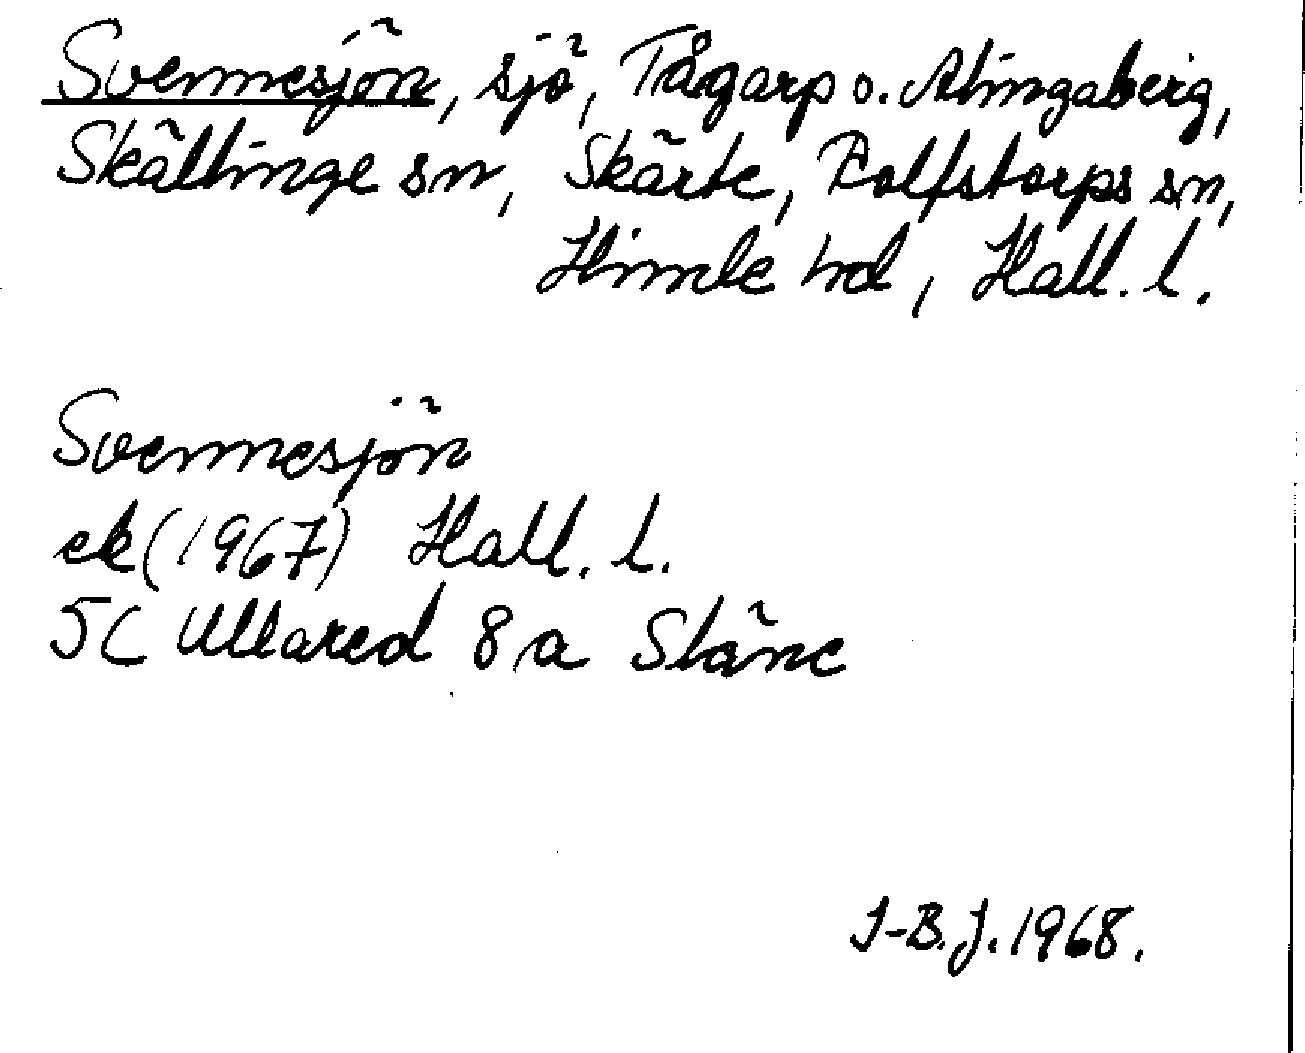 Svennesjön, sjö, Tågarp o. Alingaberg,
Skällinge sn, Skärte, Rolfstorps sn,
Himle hd, Hall. l.
Svennesjön
ek (1967) Hall. l.
5C Ullared 8 a Släne
J-B.J. 1968.